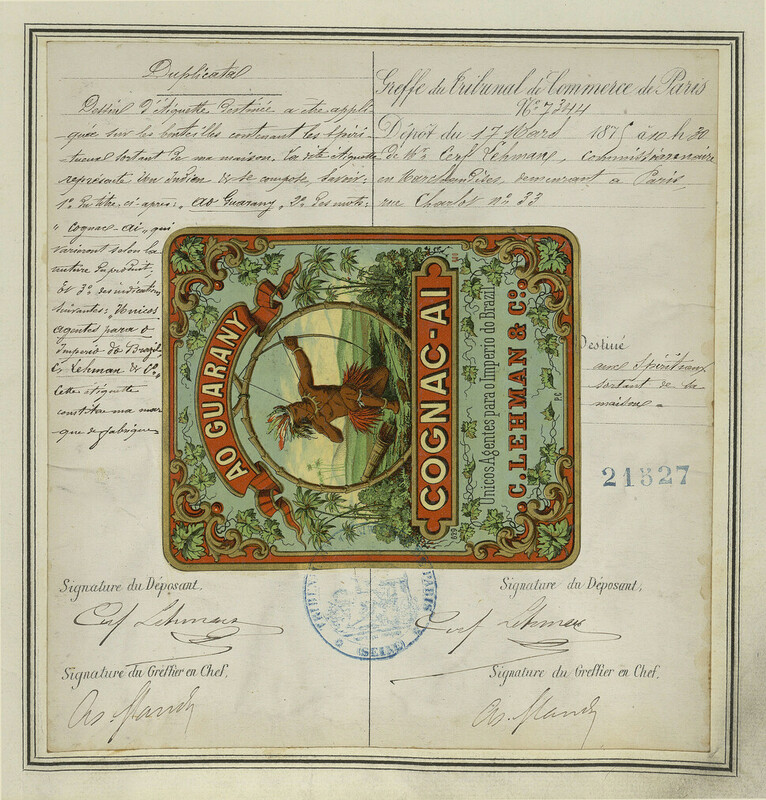 Duplicata
Dessin d'étiquette destinée a être appli-
quée sur les bouteilles contenant les spiri-
tueux sortant de ma maison. La dite étiquette
représente un Indien & se compose, savoir:
1° Du titre ci-après: "Ao Guarany" 2° Des mots:
"Cognac-Ai" qui
varieront selon la
nature du produit,
Et 3° des indications
suivantes: "Unicos
agentes para o
Imperio do Brazil
C. Lehman & Co.
Cette étiquette
constitue ma mar-
que de fabrique
Greffe du Tribunal de Commerce de Paris
No 7344
Dépôt du 17 Mars 1875 à 10 h 30
de Mr. Cerf Lehman, commissionnaire
en Marchandises, demeurant a Paris,
rue Charlot no. 33
AO GUARANY
COGNAC-AI
Unicos Agentes para o Imperio do Brazil
C. LEHMAN & Co.
Destiné
aux Spiritueux
sortant de la
maison
21527
Signature du Déposant,
Cerf Lehman
Signature du Greffier en Chef,
Signature du Déposant,
Cerf Lehman
Signature du Greffier en Chef,
PARIS
(SEINE)